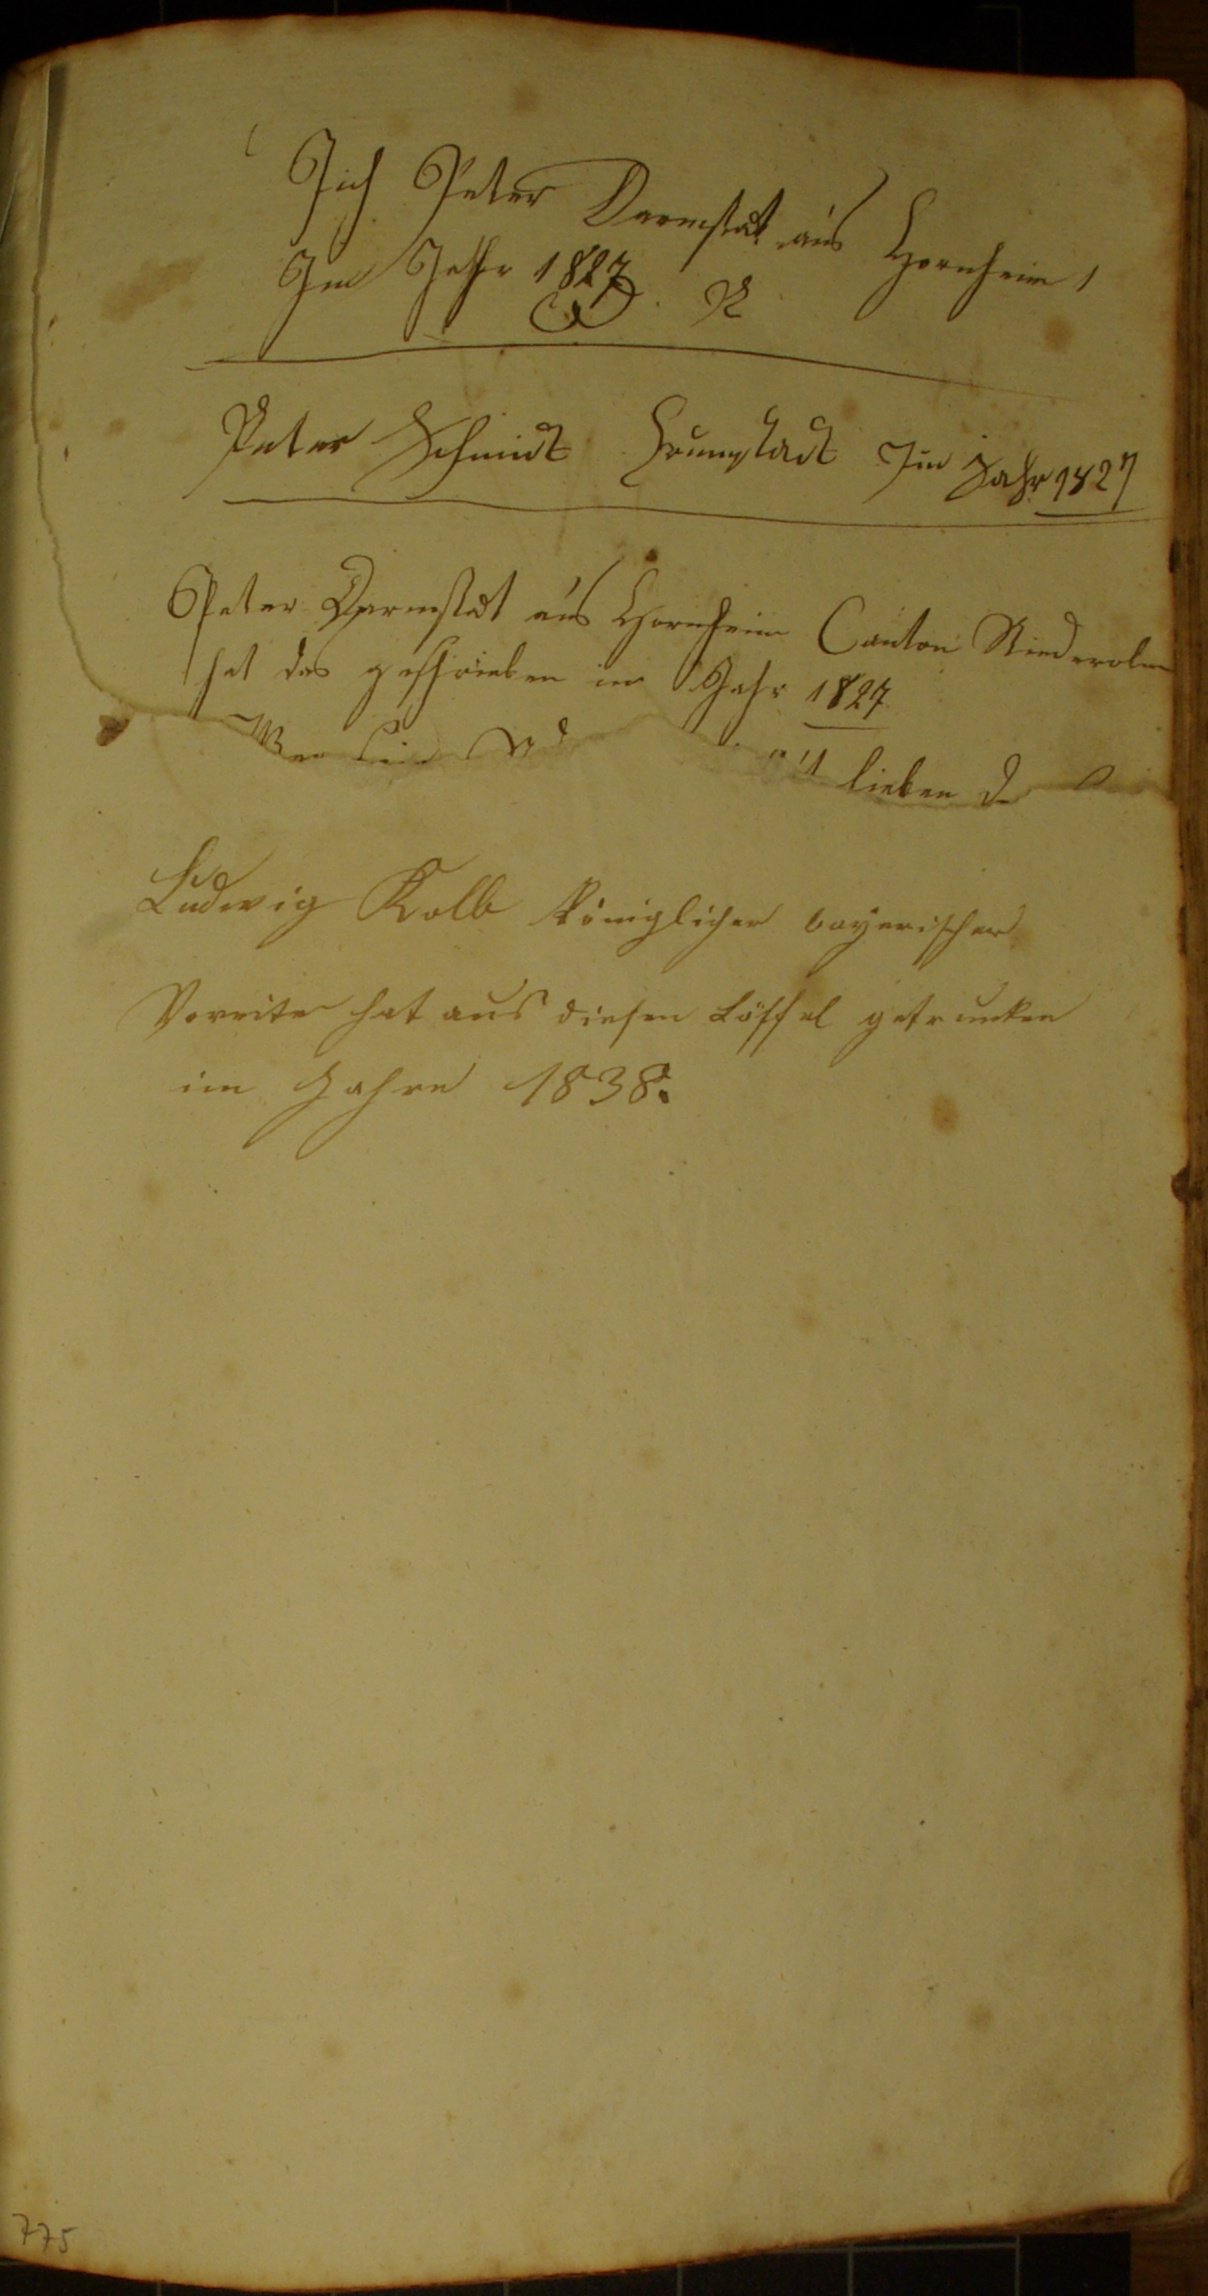 Jich Peter Darmstat aus Hornheim
Im Jahr 1827
Peter Schmidt Im Jahr 1827
Peter Darmstat aus Hornheim Canton Niederolm
hat das geschrieben im Jahr 1827
lieben
Ludwig Kolb königlicher bayerischer
Vorreiter hat aus diesen Löffel getrunken
im Jahre 1838.
775